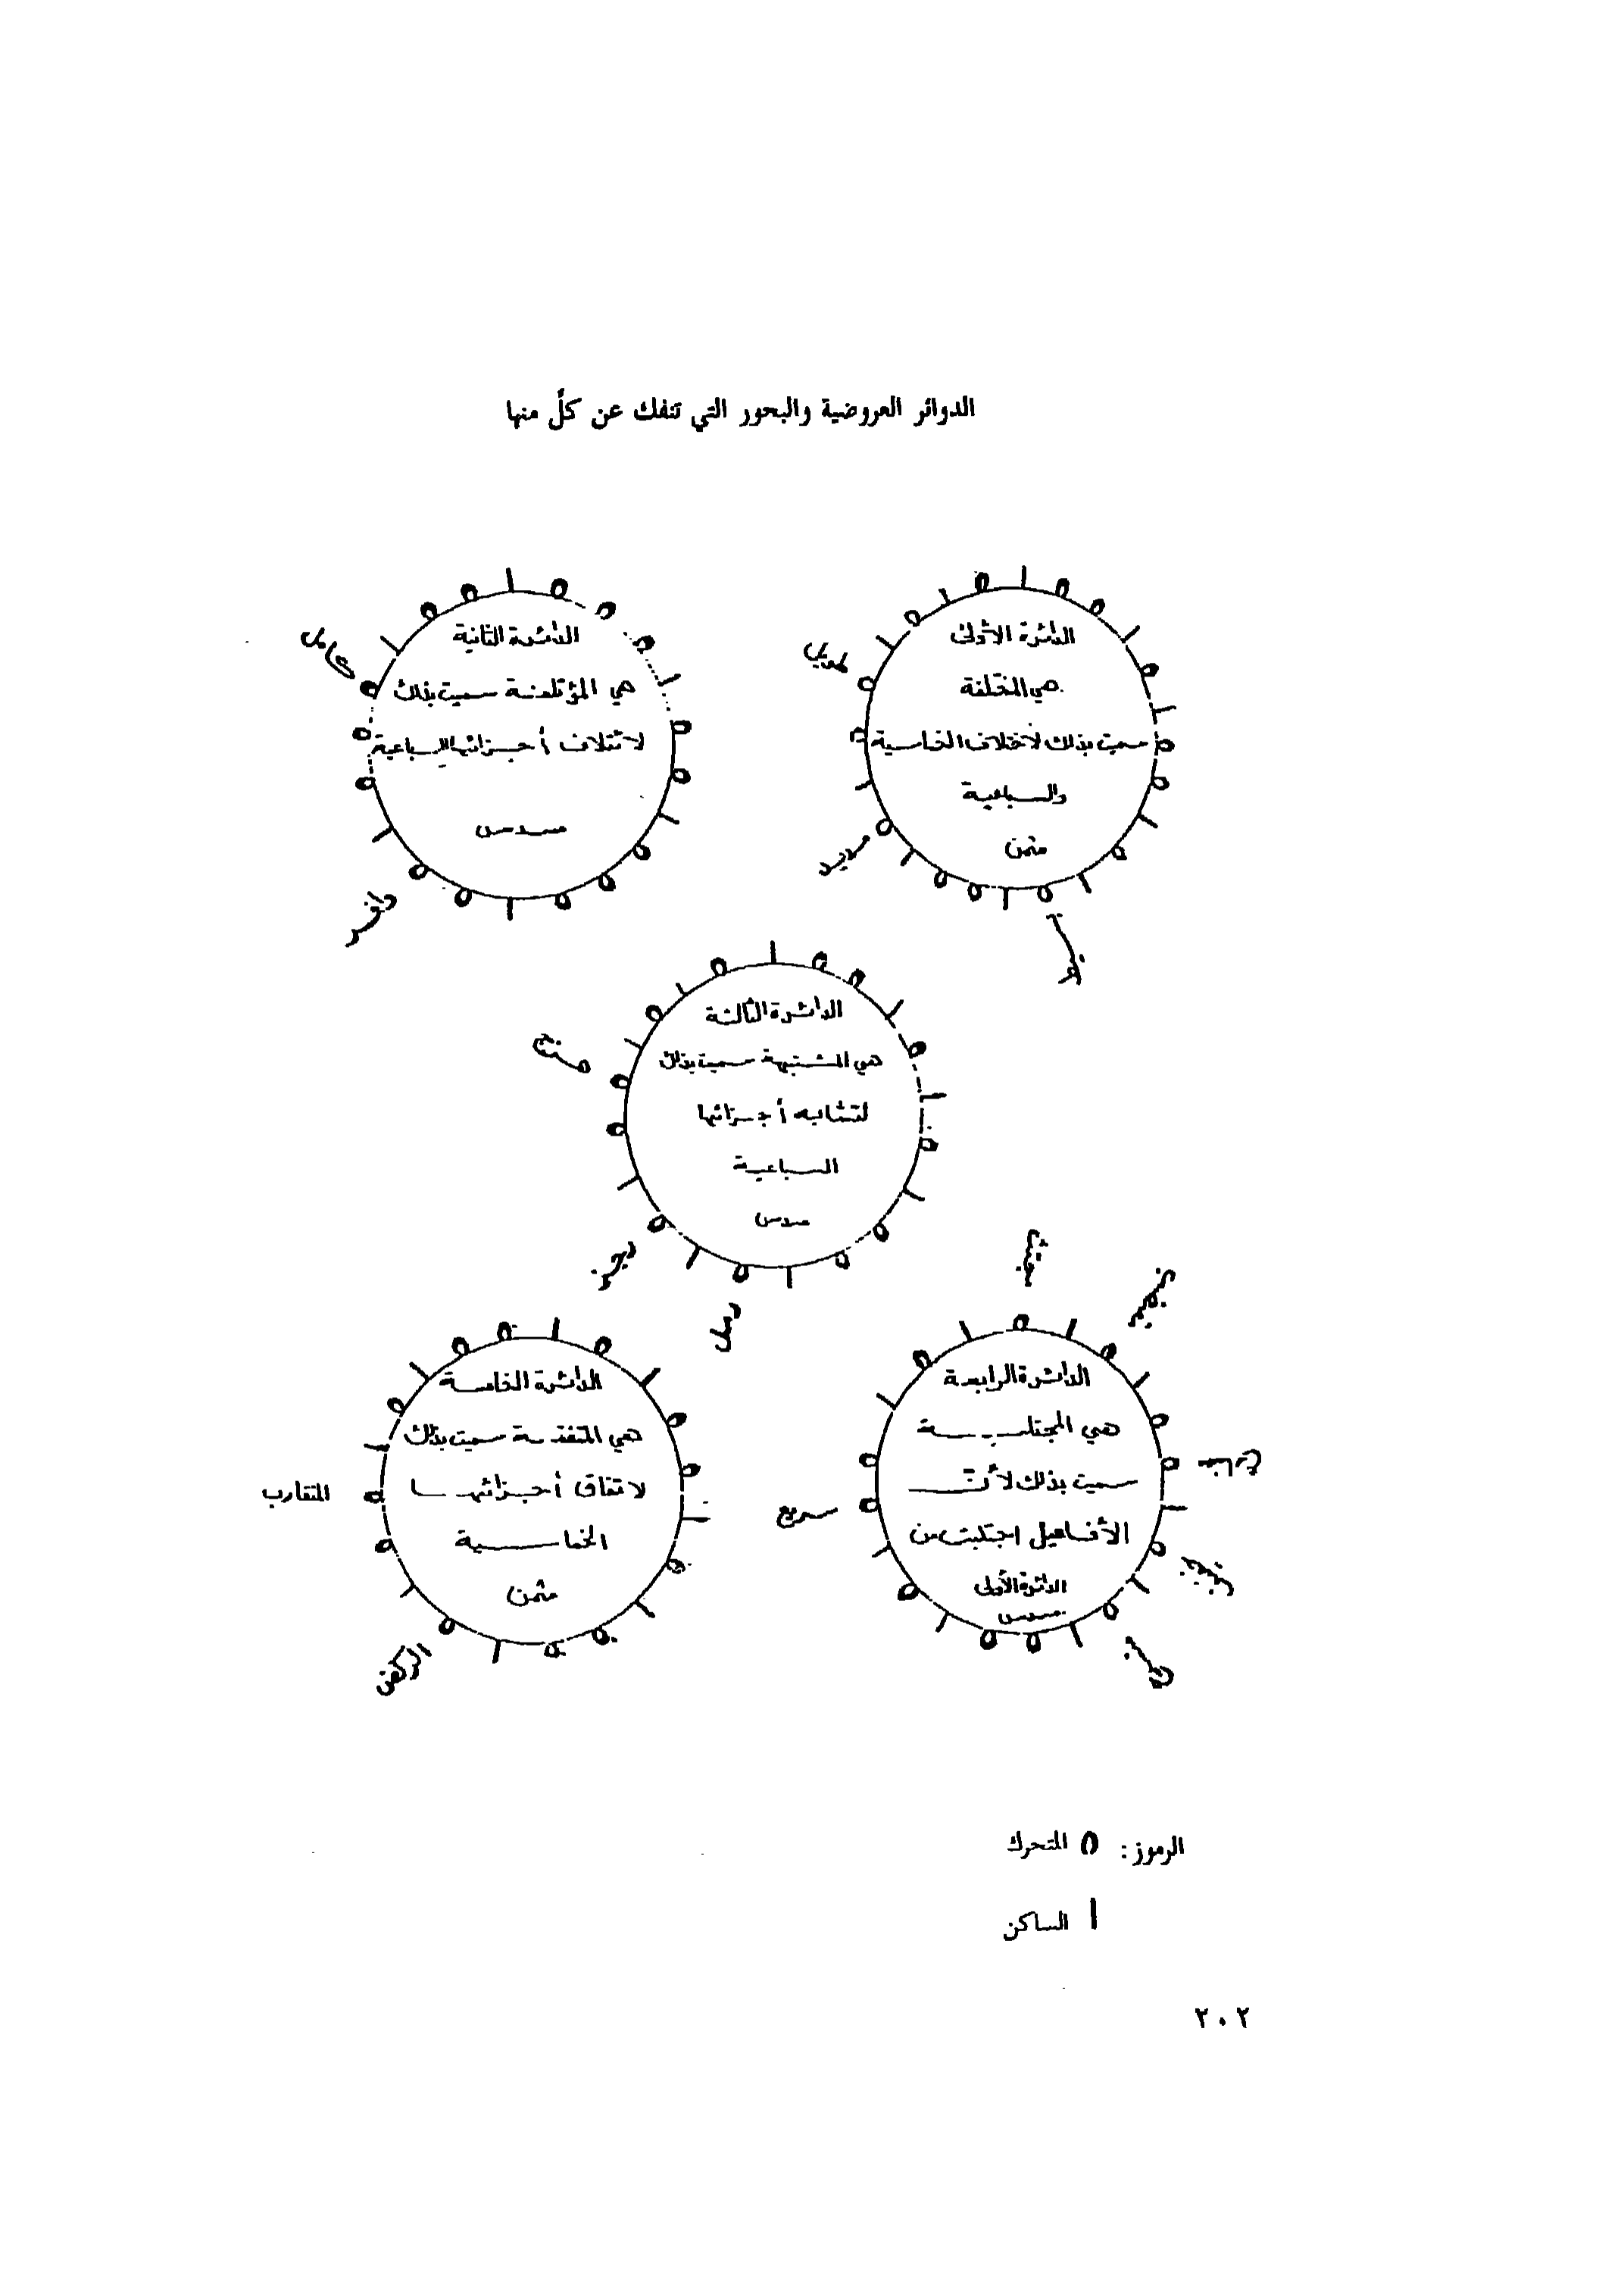 الدوائر العروضية والبحور التي تنفك عن كلّ منها
الدائرة الأولى
هي المختلفة
سميت بذلك لاختلاف الخماسية
والسباعية
مثمن
طويل
مديد
الدائرة الثانية
هي المؤتلفة سميت بذلك
لائتلاف أجزائها السباعية
مسدس
كامل
وافر
الدائرة الثالثة
هي المشتبهة سميت بذلك
لتشابه أجزائها
السباعية
مسدس
هزج
رجز
رمل
الدائرة الرابعة
هي المجتلبة
سميت بذلك لأنّ
الأفاعيل اجتلبت من
الدائرة الأولى
مسدس
مجتث
مقتضب
مضارع
خفيف
سريع
الدائرة الخامسة
هي المتفقة سميت بذلك
لاتفاق أجزائها
الخماسية
مثمن
المتقارب
الركض
الرموز : ٥ المتحرك
ا الساكن
٢٠٢